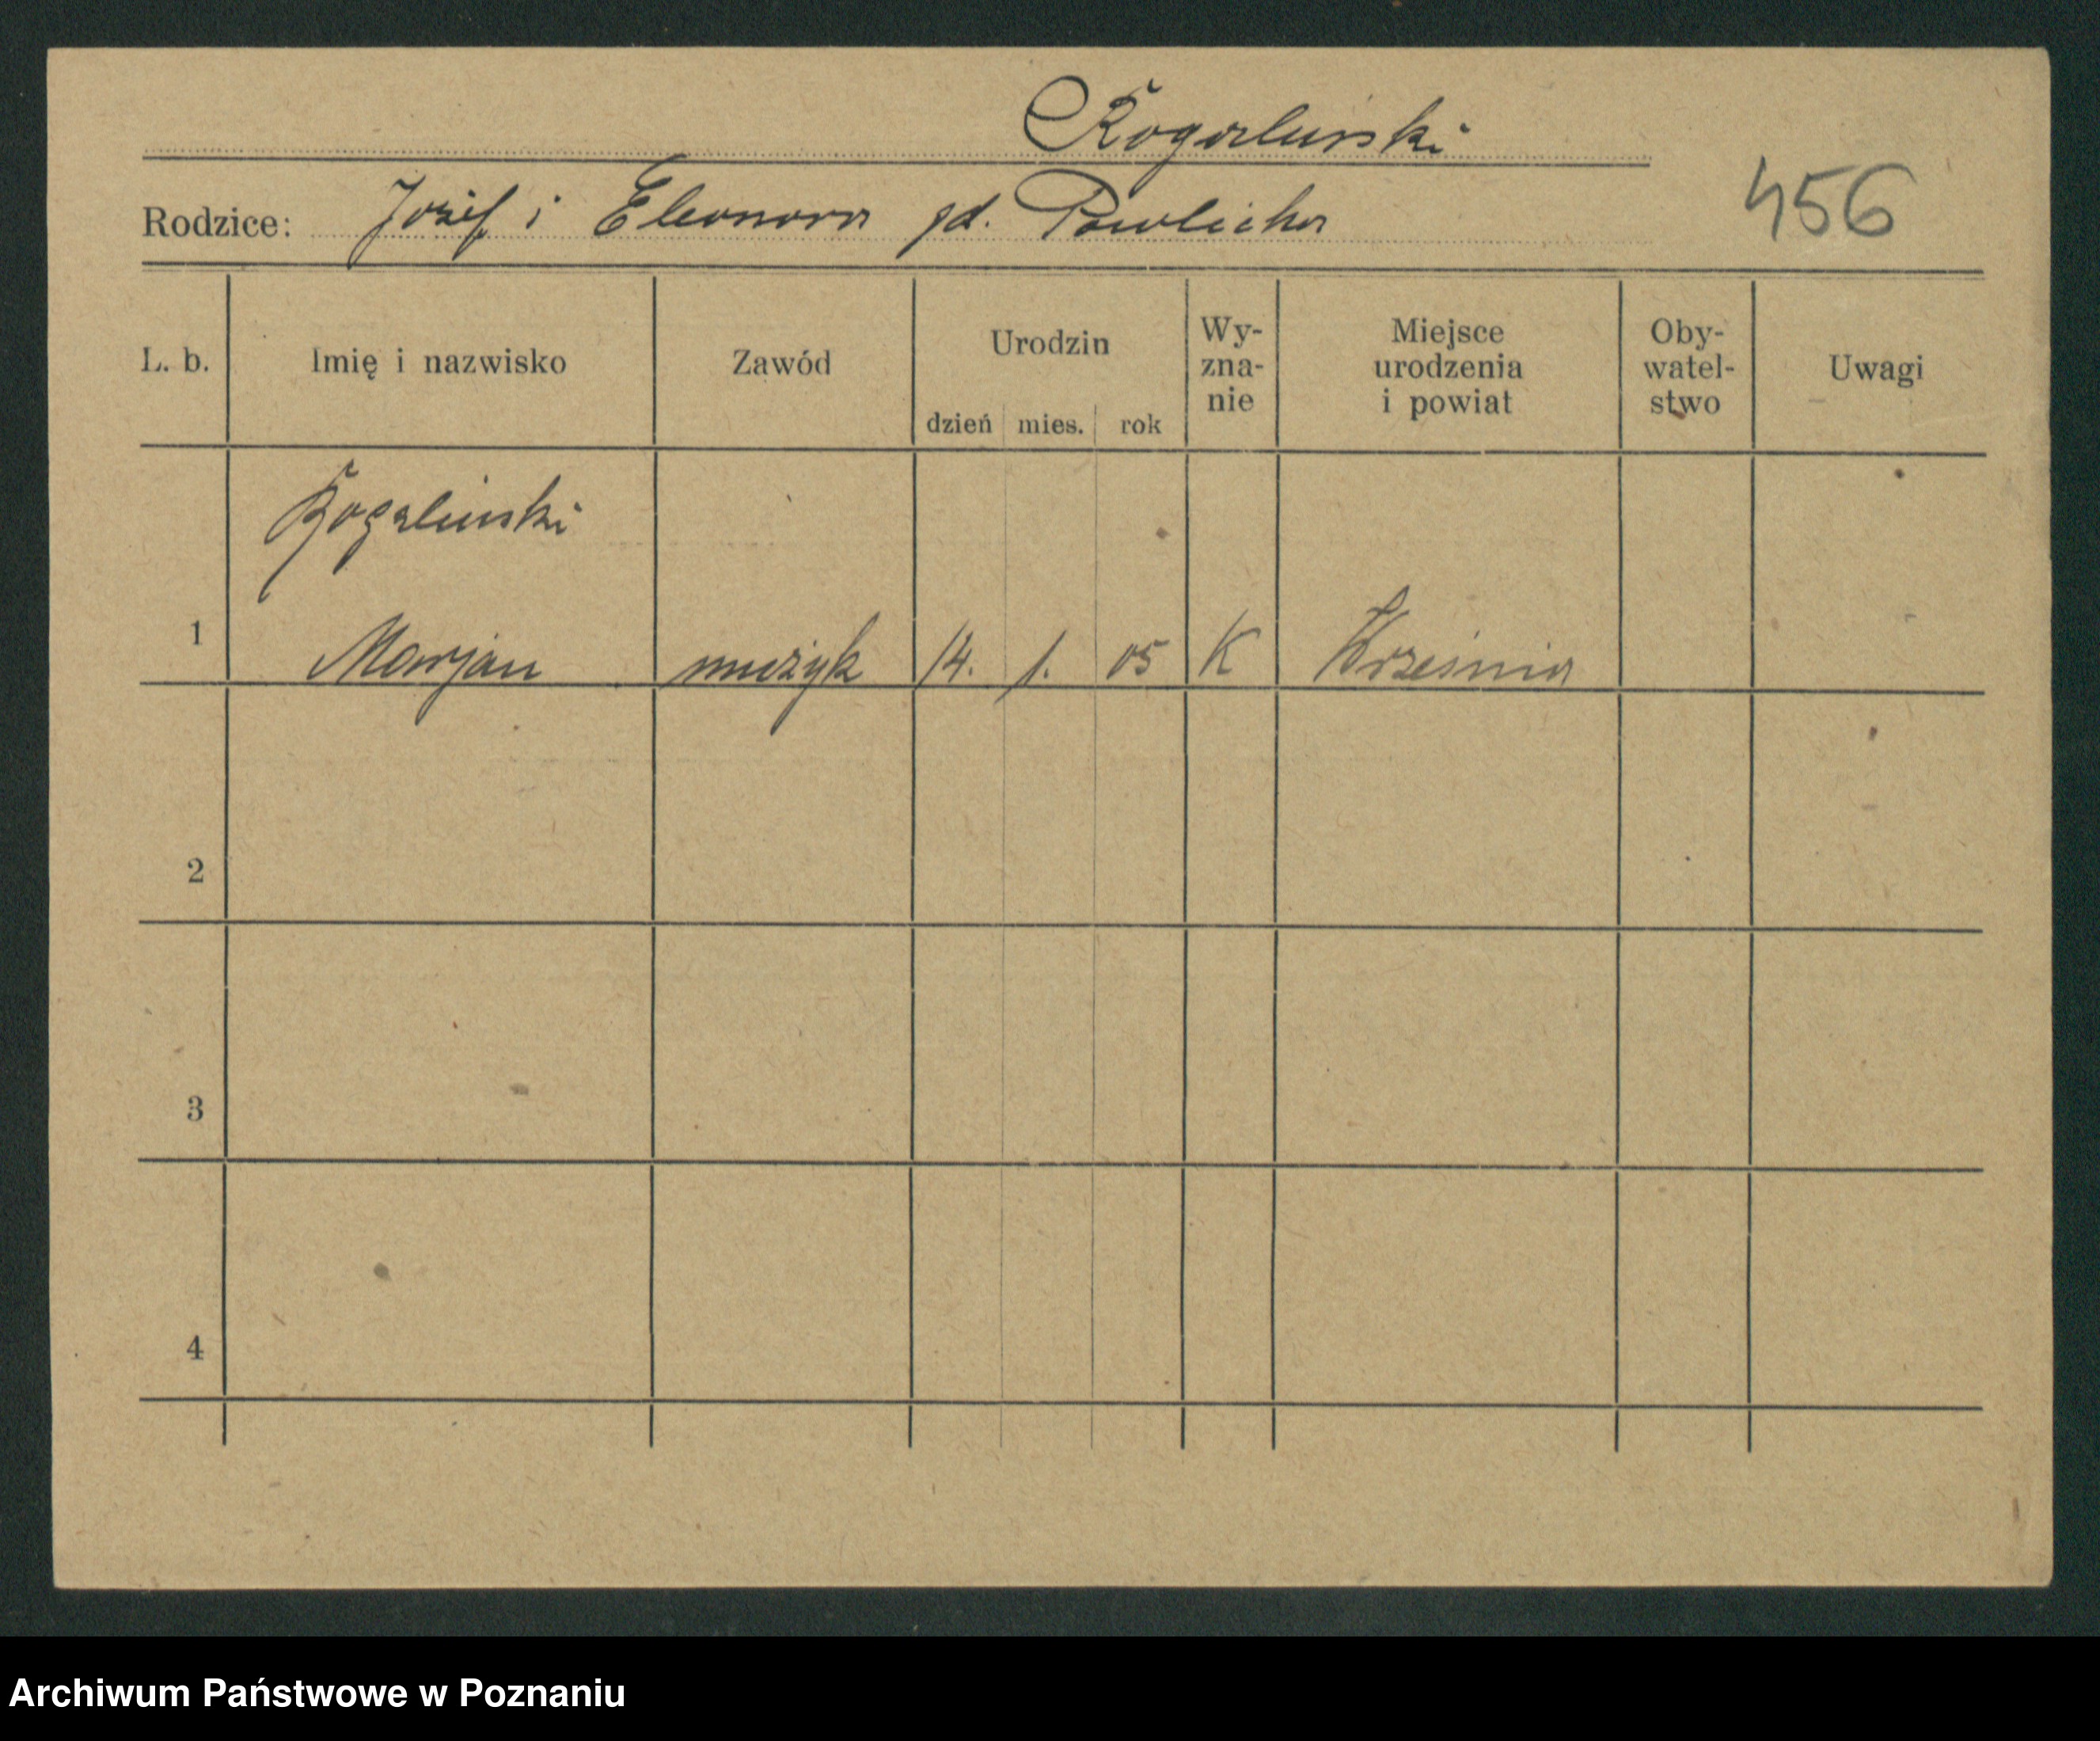 Rogaliński
Rodzice: Józef i Eleonora zd. Pawlicka
456
L. b.
Imię i nazwisko
Zawód
Urodzin
dzień mies. rok
Wy-
zna-
nie
Miejsce
urodzenia
i powiat
Oby-
watel-
stwo
Uwagi
Rogaliński
1 Marjan muzyk 14. 1. 05 K Września
2
3
4
Archiwum Państwowe w Poznaniu